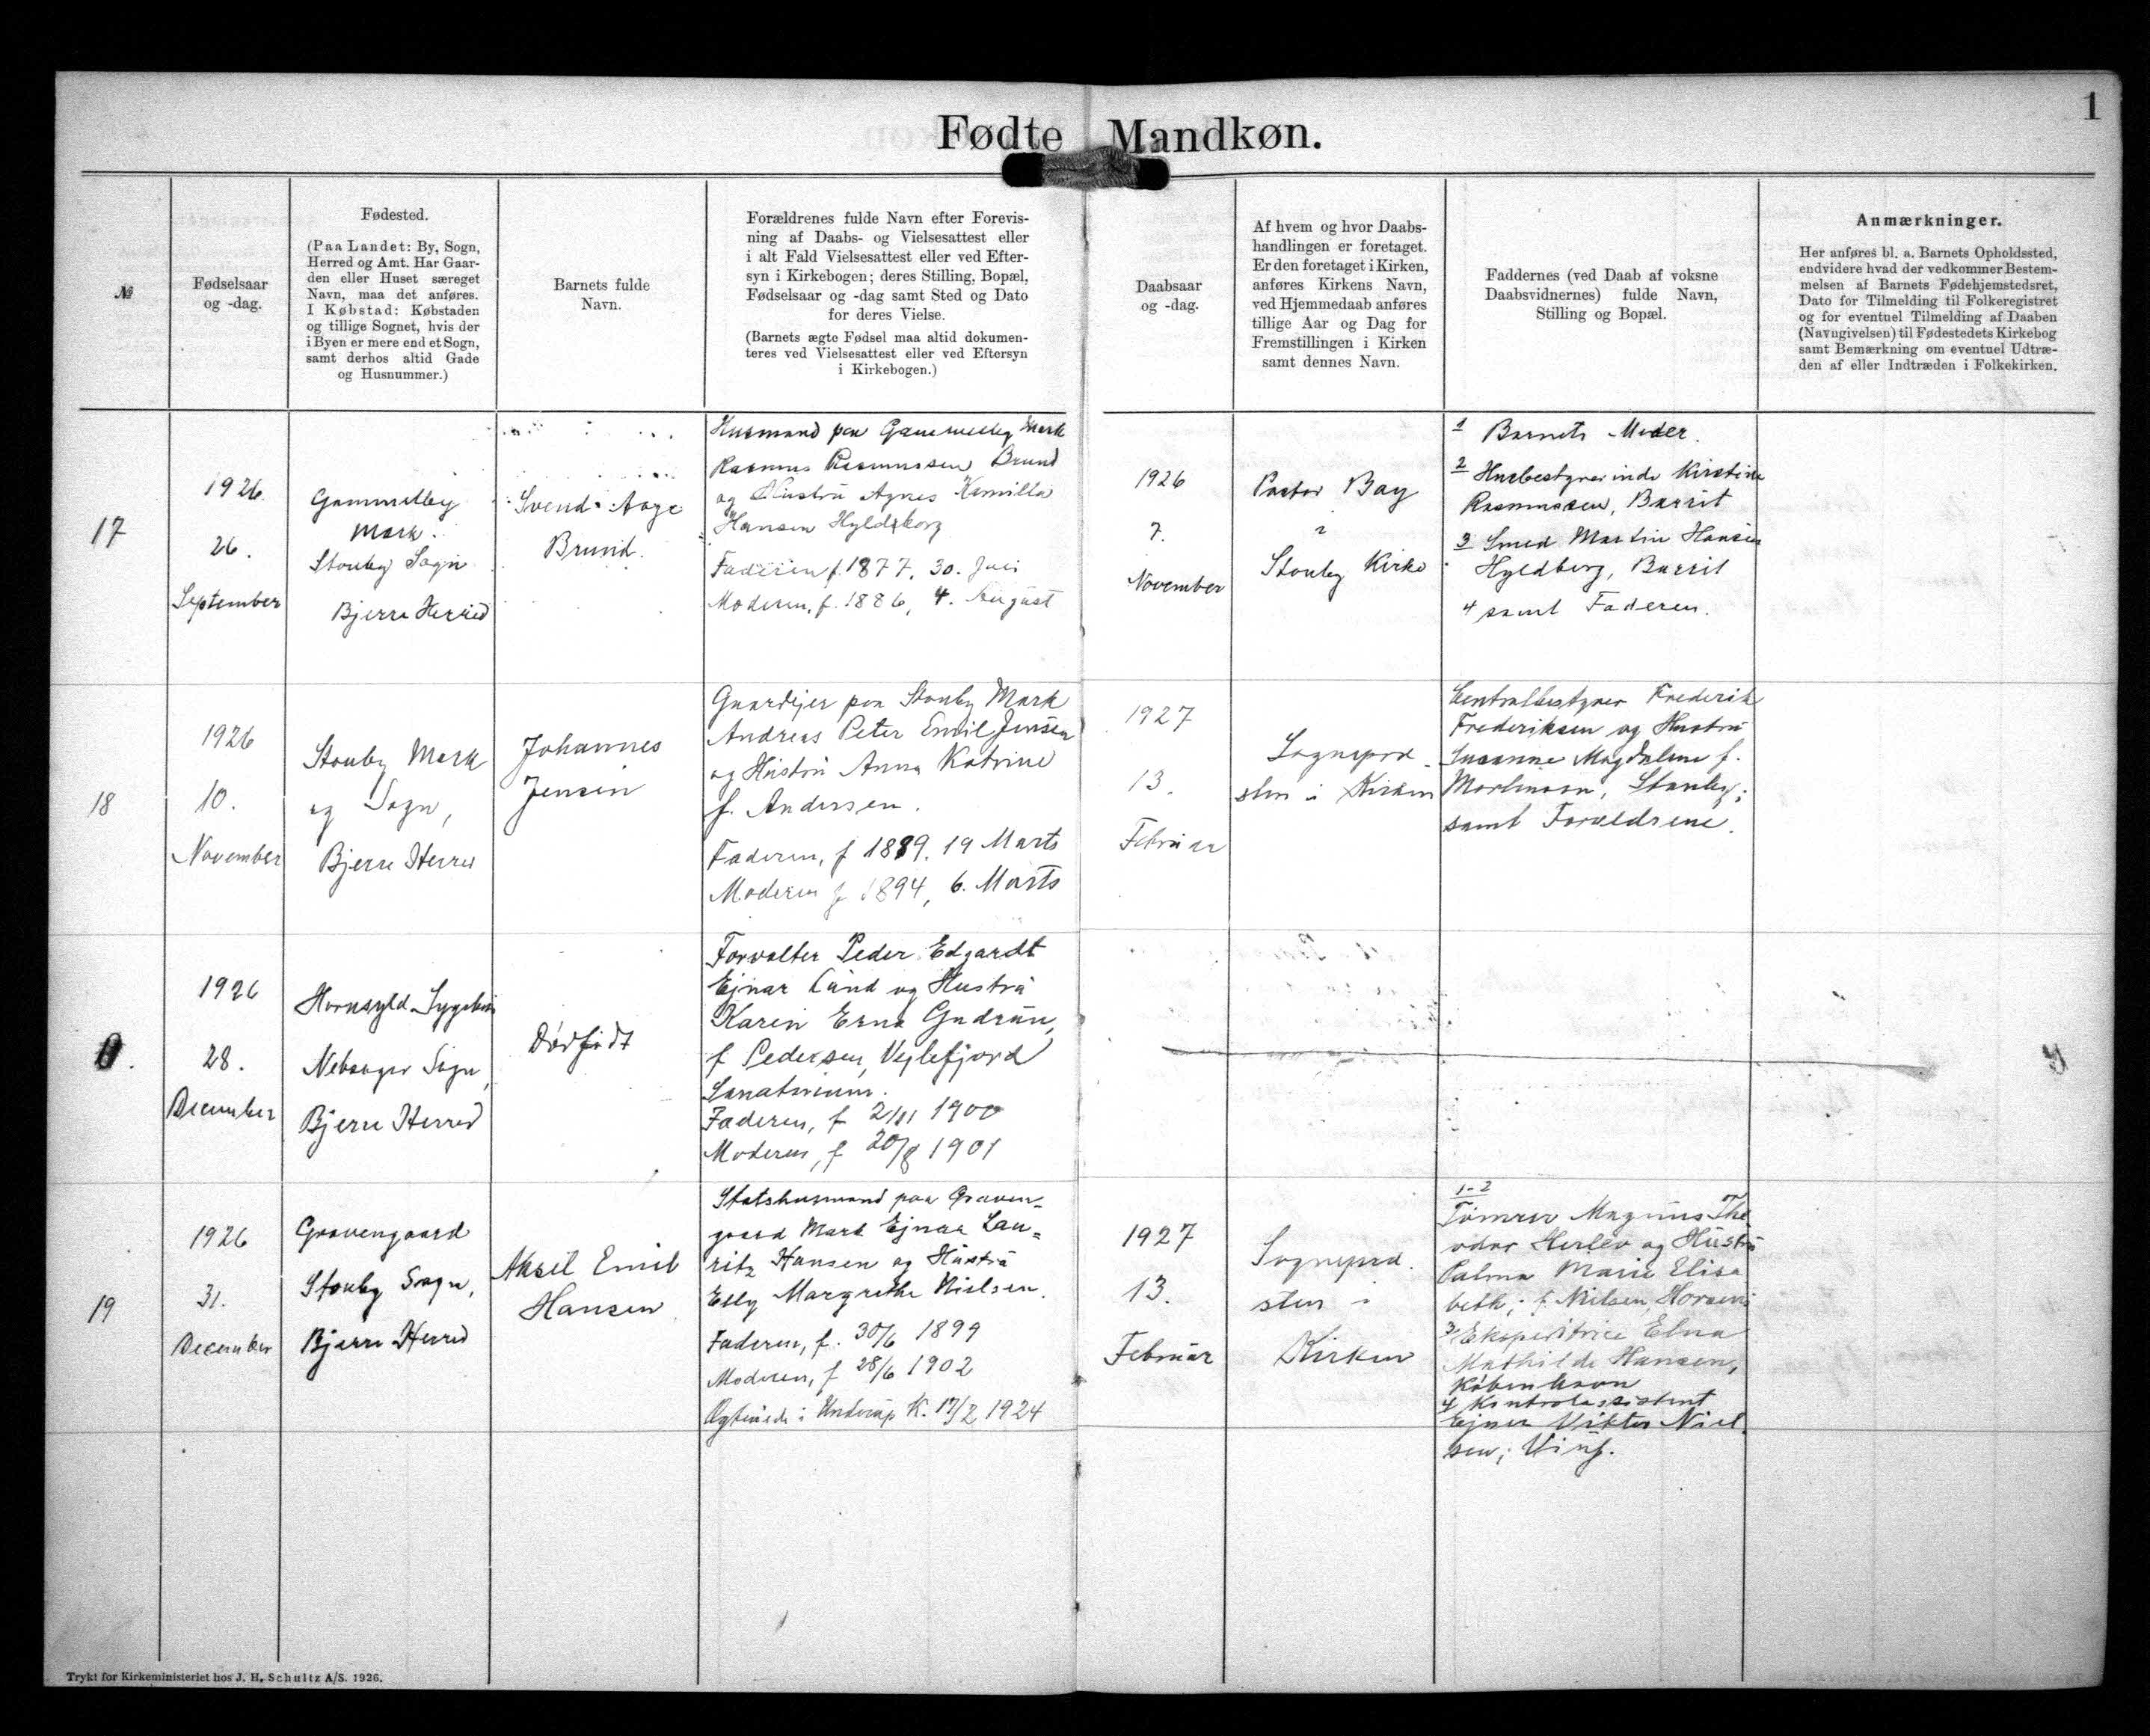 1
Fødte Mandkøn.
№
Fødselsaar
og -dag.
Fødested.
(Paa Landet: By, Sogn,
Herred og Amt. Har Gaar-
den eller Huset særeget
Navn, maa det anføres.
I Købstad: Købstaden
og tillige Sognet, hvis der
i Byen er mere end et Sogn,
samt derhos altid Gade
og Husnummer.)
Barnets fulde
Navn.
Forældrenes fulde Navn efter Forevis-
ning af Daabs- og Vielsesattest eller
i alt Fald Vielsesattest eller ved Efter-
syn i Kirkebogen; deres Stilling, Bopæl,
Fødselsaar og -dag samt Sted og Dato
for deres Vielse.
(Barnets ægte Fødsel maa altid dokumen-
teres ved Vielsesattest eller ved Eftersyn
i Kirkebogen.)
Daabsaar
og -dag.
Af hvem og hvor Daabs-
handlingen er foretaget.
Er den foretaget i Kirken,
anføres Kirkens Navn,
ved Hjemmedaab anføres
tillige Aar og Dag for
Fremstillingen i Kirken
samt dennes Navn.
Faddernes (ved Daab af voksne
Daabsvidnernes) fulde Navn,
Stilling og Bopæl.
Anmærkninger.
Her anføres bl. a. Barnets Opholdssted,
endvidere hvad der vedkommer Bestem-
melsen af Barnets Fødehjemstedsret,
Dato for Tilmelding til Folkeregistret
og for eventuel Tilmelding af Daaben
(Navngivelsen) til Fødestedets Kirkebog
samt Bemærkning om eventuel Udtræ-
den af eller Indtræden i Folkekirken.
17
1926
26.
September
Gammelby
Mark.
Stouby Sogn
Bjerre Herred
Svend Aage
Brund.
Husmand paa Gammelby Mark
Rasmus Rasmussen Brund
og Hustru Agnes Kamilla
Hansen Hyldborg
Faderen f. 1877, 30. Juni
Moderen, f. 1886, 4. August
1926
7.
November
Pastor Bay
i
Stouby Kirke
1 Barnets Moder.
2 Husbestyrerinde Kirstine
Rasmussen, Barrit
3 Smed Martin Hansen
Hyldborg, Barrit
4 samt Faderen.
18
1926
10.
November
Stouby Mark
og Sogn,
Bjerre Herred
Johannes
Jensen
Gaardejer paa Stouby Mark
Andreas Peter Emil Jensen
og Hustru Anna Katrine
f. Andersen.
Faderen, f 1889. 19 Marts
Moderen f 1894, 6. Marts
1927
13.
Februar
Sognepræ-
sten i Kirken
Centralbestyrer Frederik
Frederiksen og Hustru
Susanne Magdalene f.
Mortensen, Stouby;
samt Forældrene.
0.
1926
28.
December
Hornsyld Sygehus
Nebsager Sogn,
Bjerre Herred
Dødfødt
Forvalter Peder Edgardt
Ejnar Lund og Hustru
Karen Erna Gudrun,
f Pedersen, Vejlefjord
Sanatorium.
Faderen, f 2/11 1900
Moderen, f 20/8 1901
19
1926
31.
December
Gravengaard
Stouby Sogn,
Bjerre Herred
Aksel Emil
Hansen
Statshusmand paa Graven-
gaard Mark Ejnar Lau=
ritz Hansen og Hustru
Elly Margrethe Nielsen.
Faderen, f. 30/6 1899
Moderen, f 28/6 1902
Ægteviede i Underup K. 17/2 1924
1927
13.
Februar
Sognepræ-
sten i
Kirken
1-2
Tømrer Magnus The
odor Herlev og Hustru
Palma Marie Elisa
beth, f. Nielsen, Horsens
3 Ekspeditrice Elna
Mathilde Hansen,
København
4 Kontrolassistent
Ejner Viktor Niel
sen,
Trykt for Kirkeministeriet hos J. H. Schultz A/S. 1926.